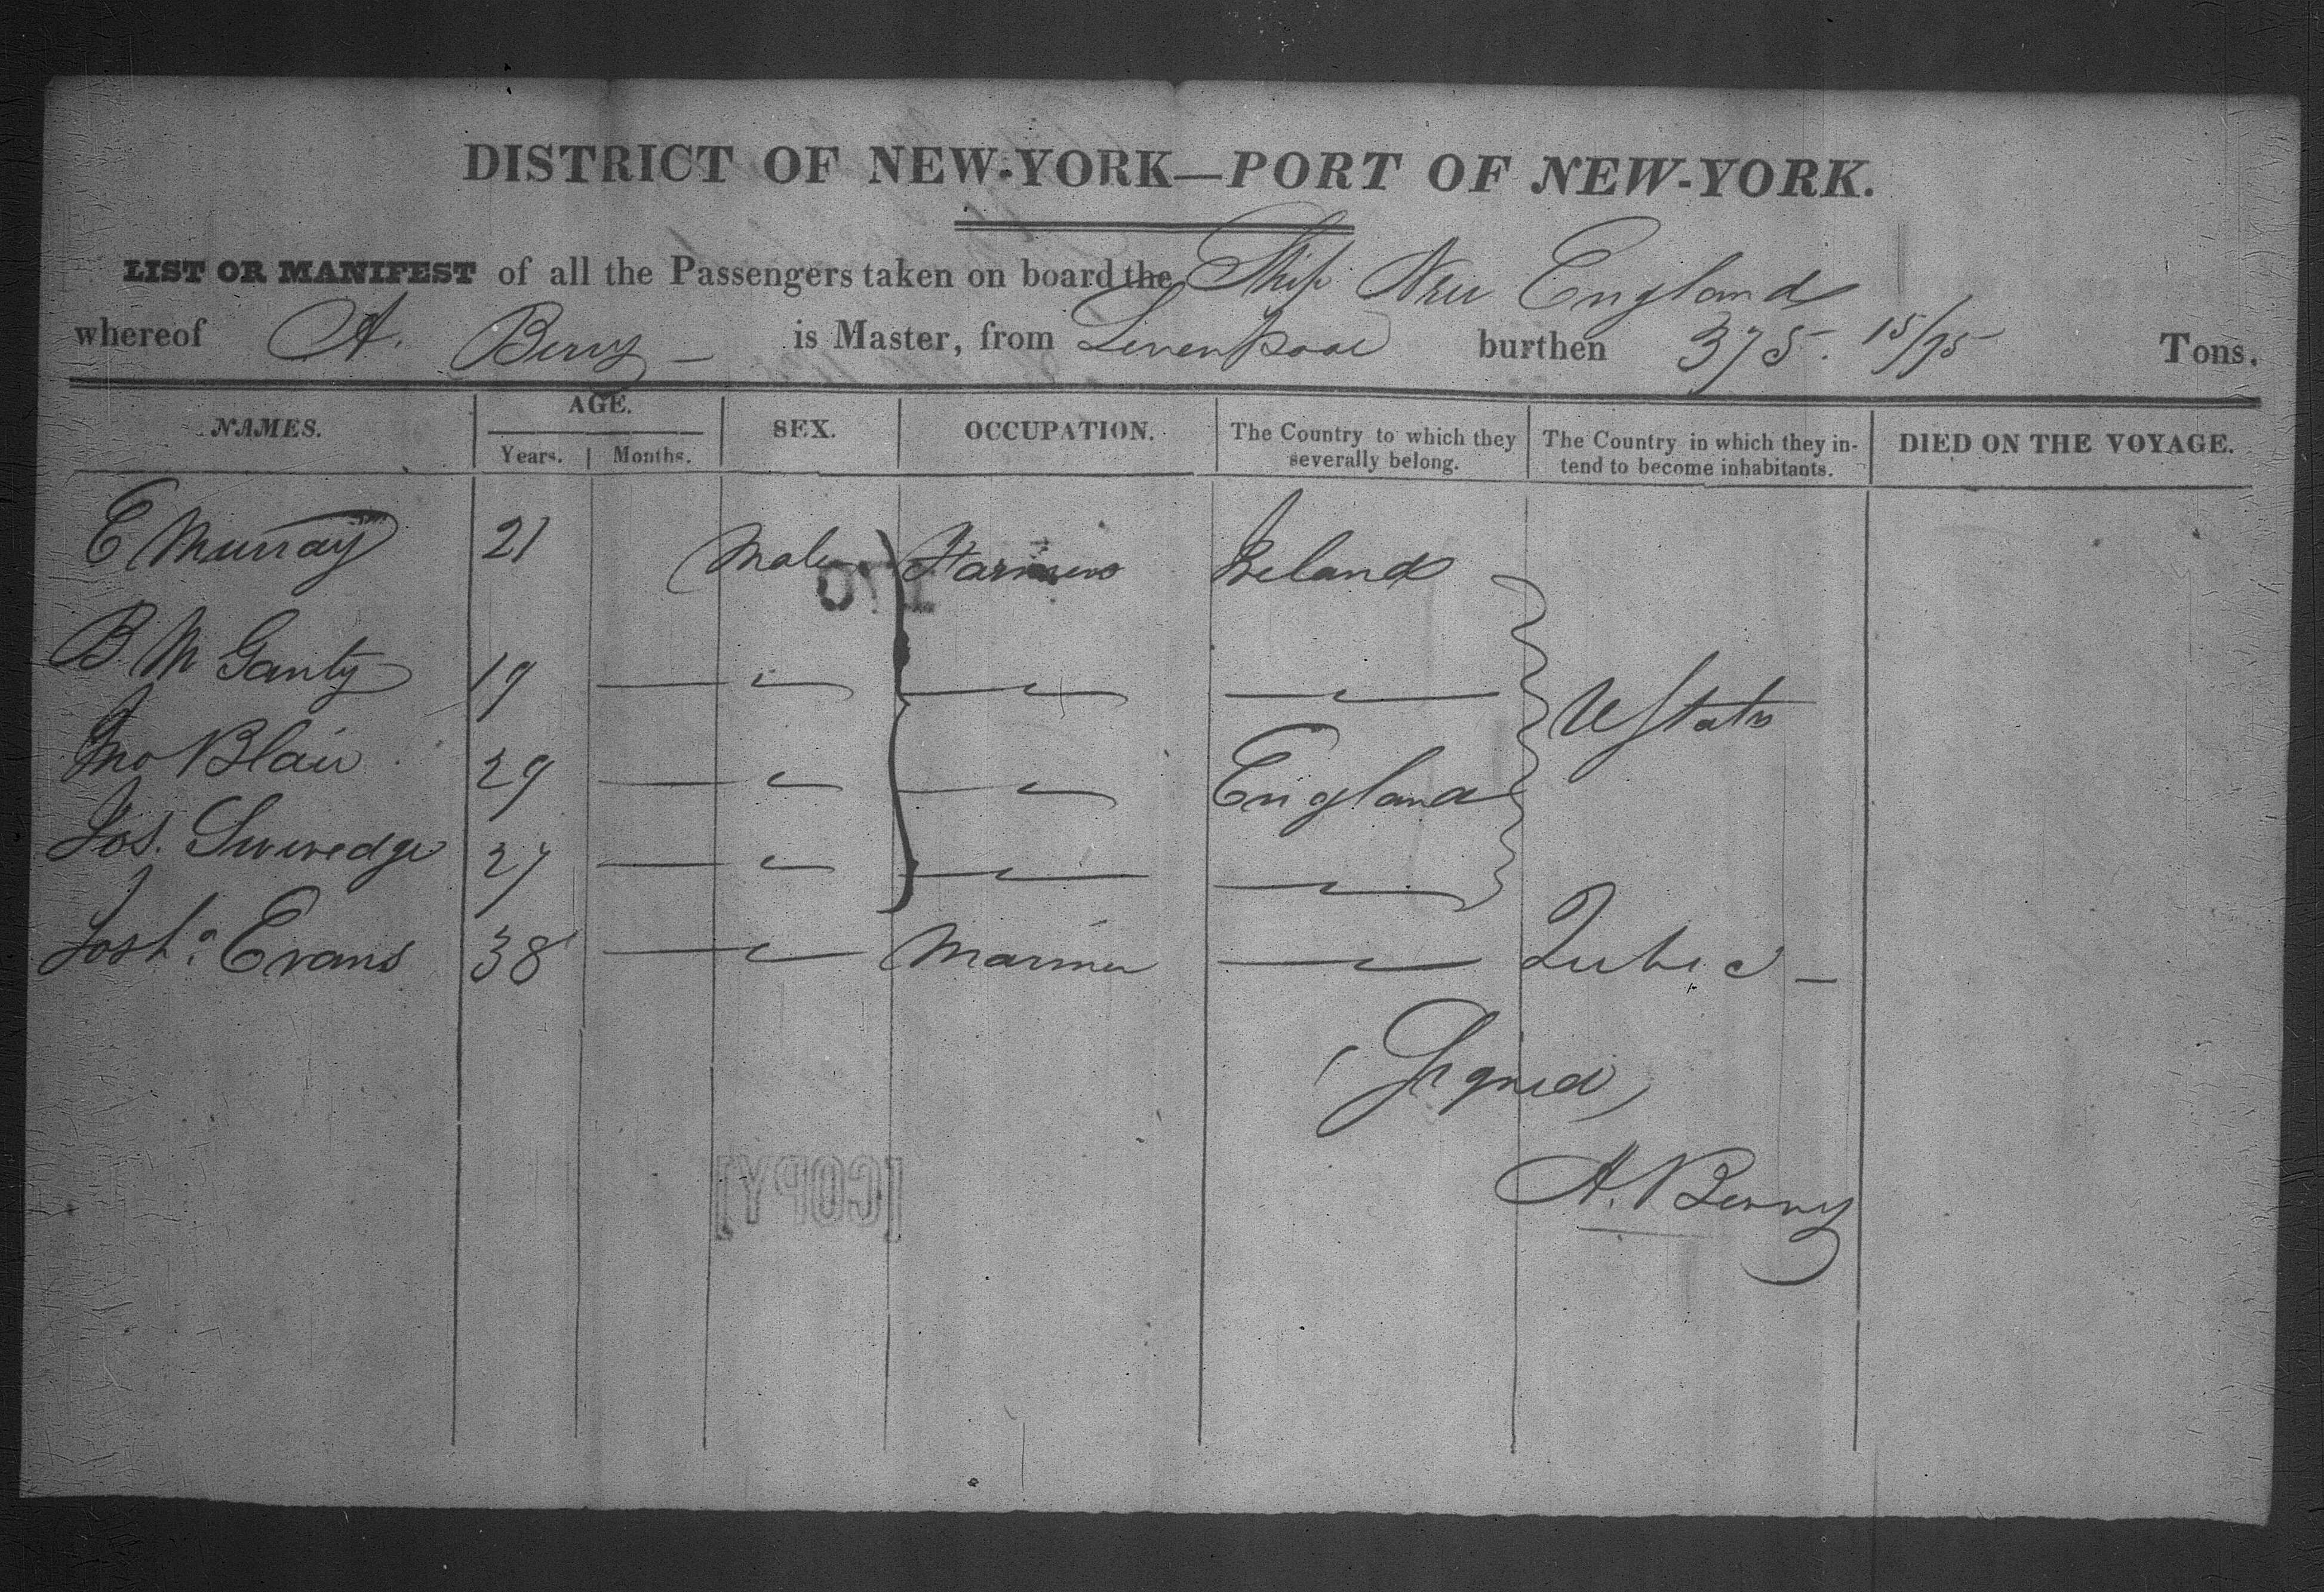 DISTRICT OF NEW-YORK—PORT OF NEW-YORK.
LIST OR MANIFEST of all the Passengers taken on board the Ship New England
whereof A. Berry — is Master, from Liverpool burthen 375. 15/95 Tons.
NAMES. AGE. Years. Months. SEX. OCCUPATION. The Country to which they severally belong. The Country in which they intend to become inhabitants. DIED ON THE VOYAGE.
E Murray 21 Male Farmers Ireland
B Mc Ganty 19
U States
Jno Blair 29 England
Jos. 27
Josha. Evans 38 Mariner Quebec —
(Signed)
A. Berry
[COPY]